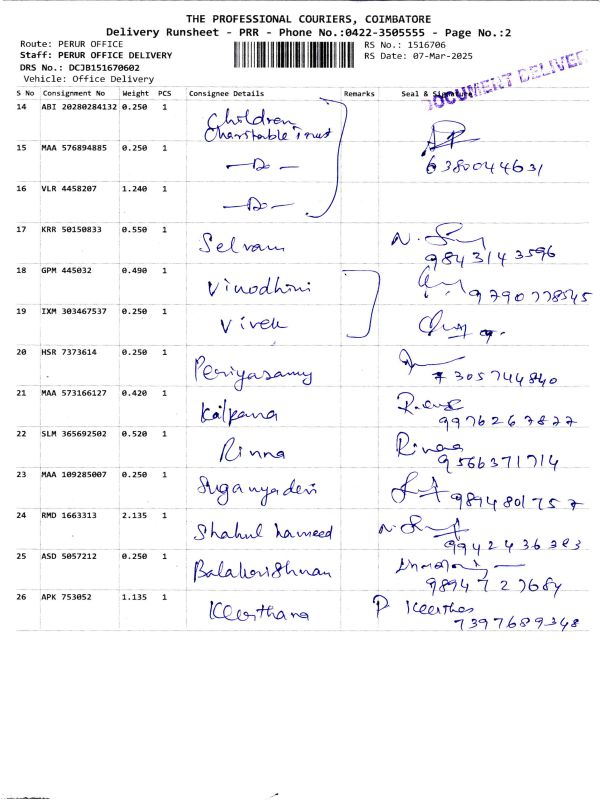 THE PROFESSIONAL COURIERS, COIMBATORE
Delivery Runsheet - PRR - Phone No.:0422-3505555 - Page No.:2
Route: PERUR OFFICE
RS No.: 1516706
Staff: PERUR OFFICE DELIVERY
RS Date: 07-Mar-2025
DRS No.: DCJB151670602
Vehicle: Office Delivery
DOCUMENT DELIVER
S No Consignment No Weight PCS Consignee Details Remarks Seal & Signature
14 ABI 20280284132 0.250 1 Children
Charitable Trust
15 MAA 576894885 0.250 1 -Do- 6380044631
16 VLR 4458207 1.240 1 -Do-
17 KRR 50150833 0.550 1 Selvam
9843143596
18 GPM 445032 0.490 1 Vinodhini 9790778545
19 IXM 303467537 0.250 1 Vivek
20 HSR 7373614 0.250 1 Periyasamy 7305744840
21 MAA 573166127 0.420 1 Kalpana
9976267877
22 SLM 365692502 0.520 1 Rinna Rinna
9566371714
23 MAA 109285007 0.250 1 Suganyadevi 9894801757
24 RMD 1663313 2.135 1 Shahul hameed
9942436283
25 ASD 5057212 0.250 1 Balakrishnan
9894727684
26 APK 753052 1.135 1 Keerthana P Keerthana
7397689348